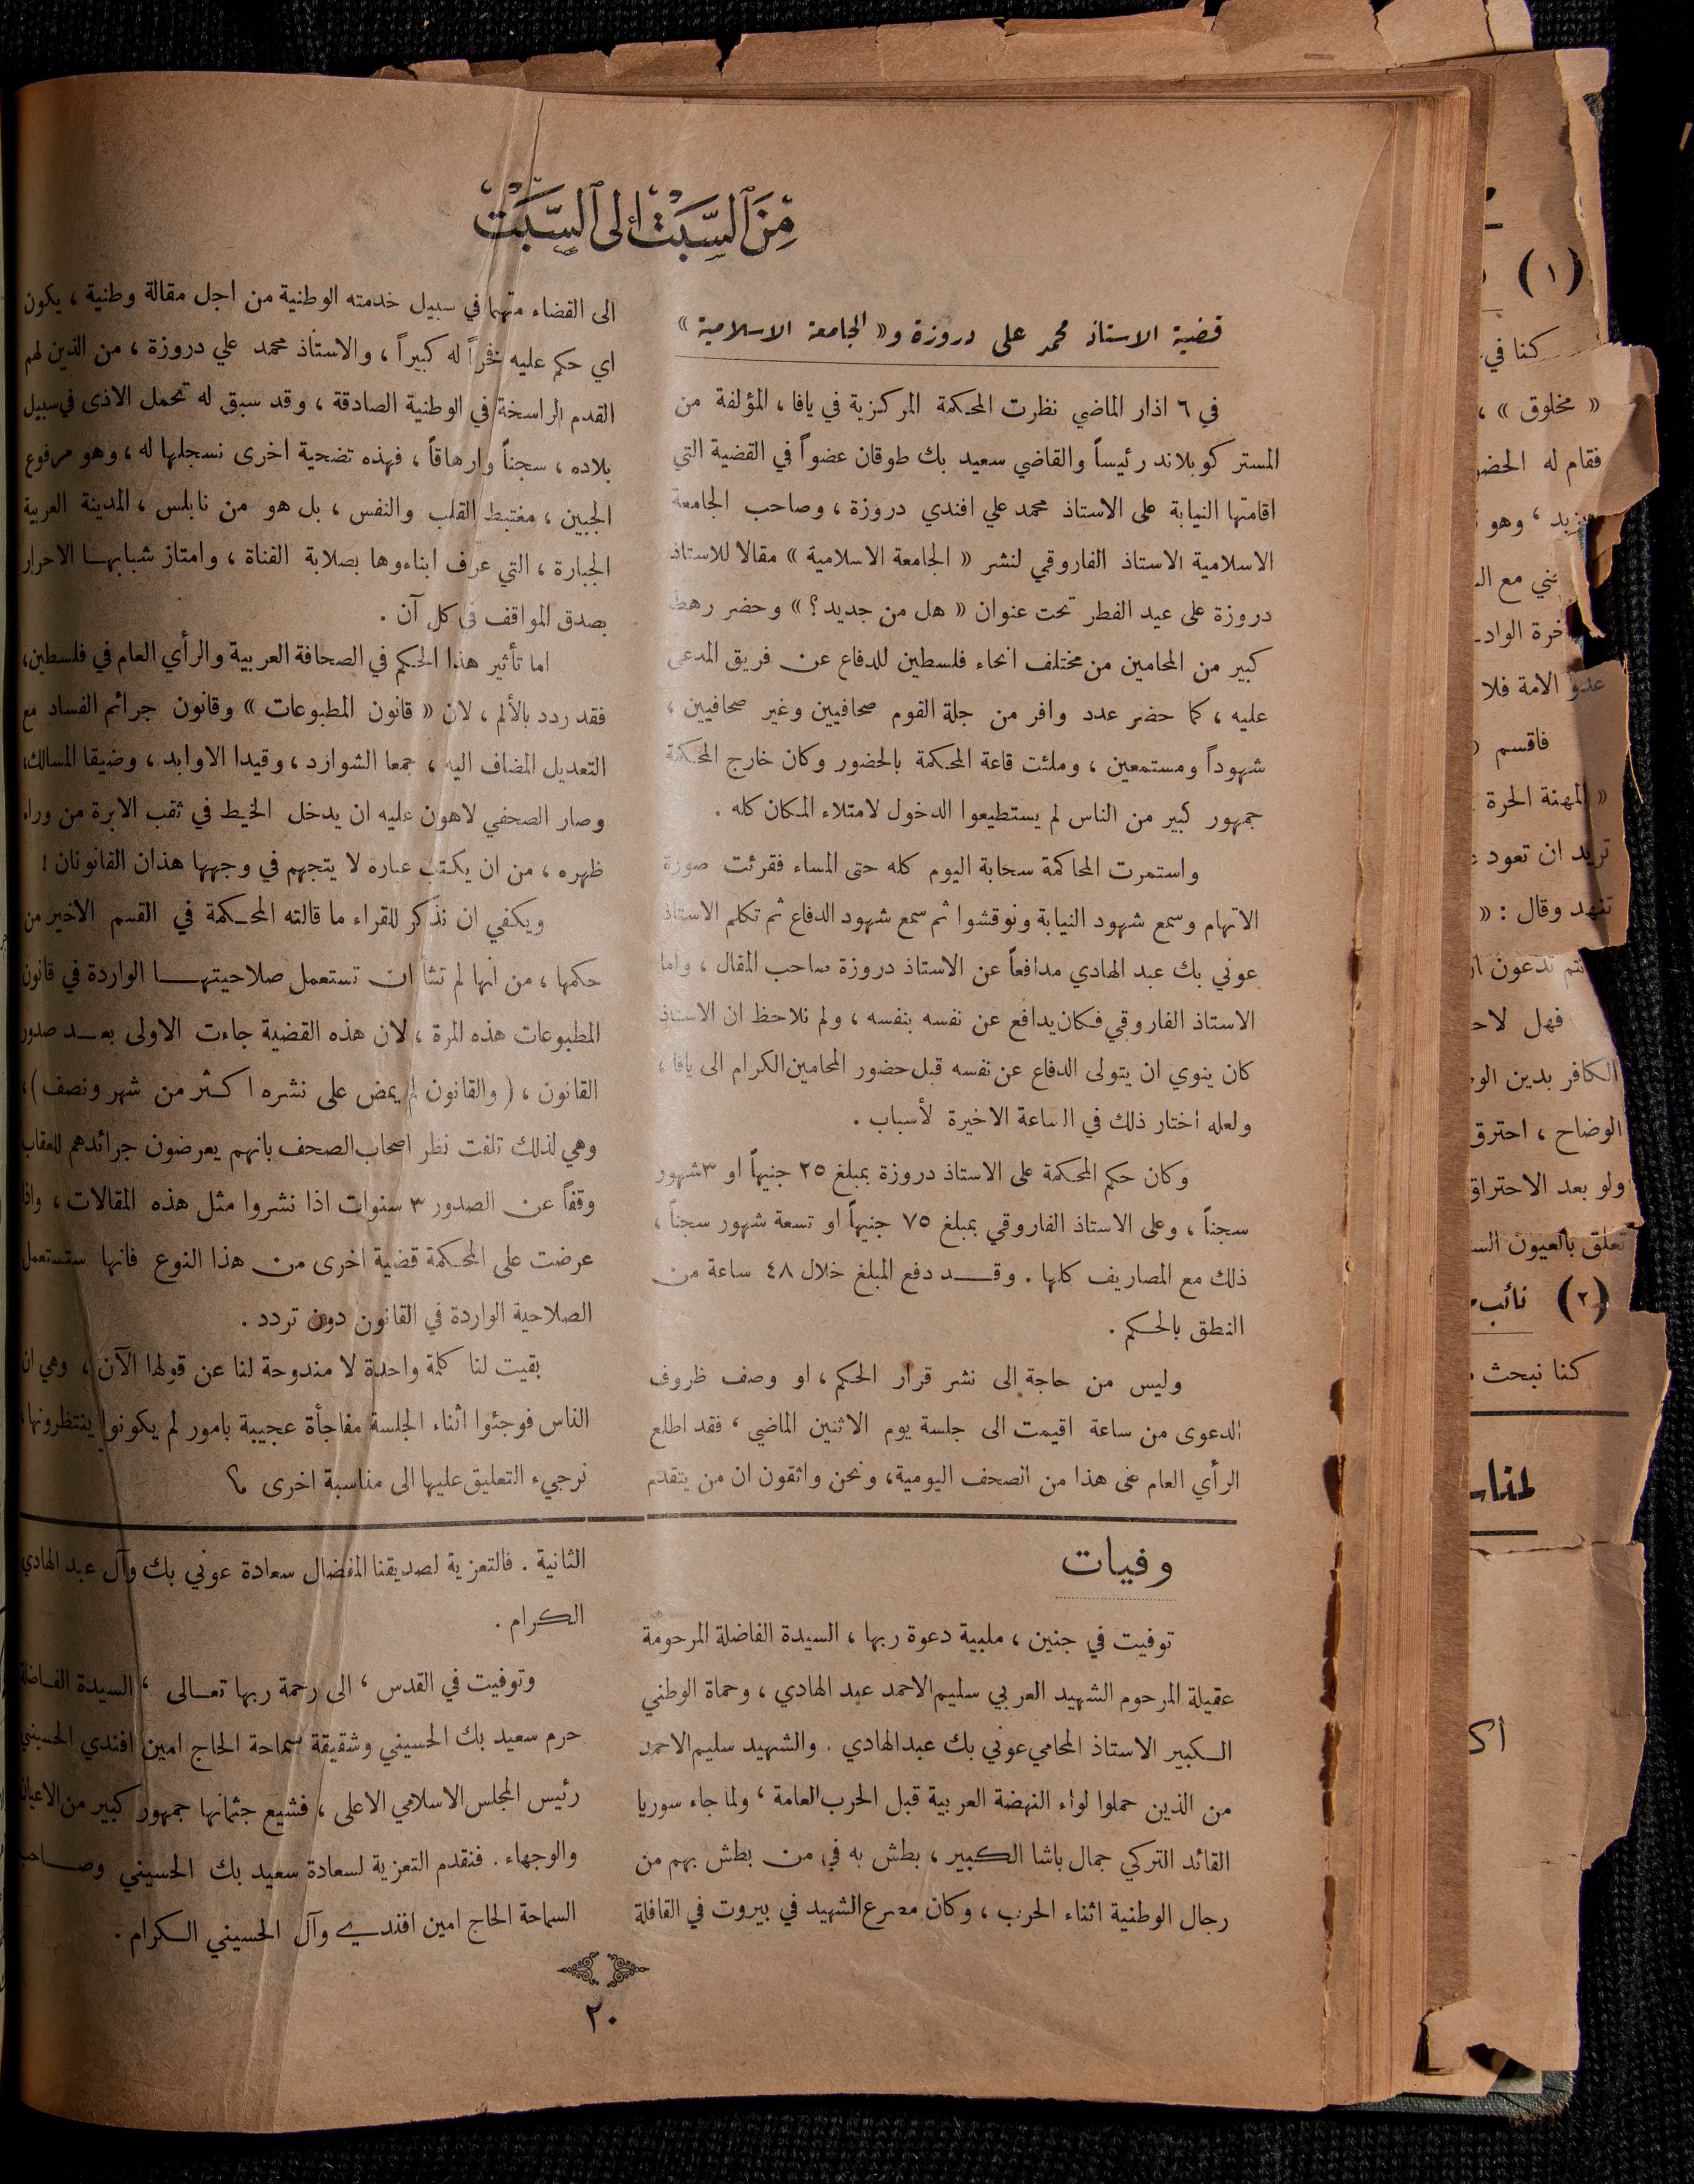 من السبت الى السبت
قضية الاستاذ محمد علي دروزة و« الجامعة الاسلامية »
في ٦ اذار الماضي نظرت المحكمة المركزية في يافا ، المؤلفة من
المستر كوبلاند رئيساً والقاضي سعيد بك طوقان عضواً في القضية التي
اقامتها النيابة على الاستاذ محمد علي افندي دروزة ، وصاحب الجامعة
الاسلامية الاستاذ الفاروقي لنشر « الجامعة الاسلامية » مقالا للاستاذ
دروزة على عيد الفطر تحت عنوان « هل من جديد ؟ » وحضر رهط
كبير من المحامين من مختلف انحاء فلسطين للدفاع عن فريق المدعى
عليه ، كما حضر عدد وافر من جلة القوم صحافيين وغير صحافيين ،
شهوداً ومستمعين ، وملئت قاعة المحكمة بالحضور وكان خارج المحكمة
جمهور كبير من الناس لم يستطيعوا الدخول لامتلاء المكان كله .
واستمرت المحاكمة سحابة اليوم كله حتى المساء فقرئت صورة
الاتهام وسمع شهود النيابة ونوقشوا ثم سمع شهود الدفاع ثم تكلم الاستاذ
عوني بك عبد الهادي مدافعاً عن الاستاذ دروزة صاحب المقال ، واما
الاستاذ الفاروقي فكان يدافع عن نفسه بنفسه ، ولم نلاحظ ان الاستاذ
كان ينوي ان يتولى الدفاع عن نفسه قبل حضور المحامين الكرام الى يافا ،
ولعله اختار ذلك في الساعة الاخيرة لأسباب .
وكان حكم المحكمة على الاستاذ دروزة بمبلغ ٢٥ جنيهاً او ٣ شهور
سجناً ، وعلى الاستاذ الفاروقي بمبلغ ٧٥ جنيهاً او تسعة شهور سجناً ،
ذلك مع المصاريف كلها . وقد دفع المبلغ خلال ٤٨ ساعة من
النطق بالحكم .
وليس من حاجة الى نشر قرار الحكم ، او وصف ظروف
الدعوى من ساعة اقيمت الى جلسة يوم الاثنين الماضي ، فقد اطلع
الرأي العام على هذا من الصحف اليومية ، ونحن واثقون ان من يتقدم
الى القضاء متهما في سبيل خدمته الوطنية من اجل مقالة وطنية ، يكون
اي حكم عليه فخراً له كبيراً ، والاستاذ محمد علي دروزة ، من الذين لهم
القدم الراسخة في الوطنية الصادقة ، وقد سبق له تحمل الاذى في سبيل
بلاده ، سجناً وارهاقاً ، فهذه تضحية اخرى نسجلها له ، وهو مرفوع
الجبين ، مغتبط القلب والنفس ، بل هو من نابلس ، المدينة العربية
الجبارة ، التي عرف ابناءوها بصلابة القناة ، وامتاز شبابها الاحرار
بصدق المواقف في كل آن .
اما تأثير هذا الحكم في الصحافة العربية والرأي العام في فلسطين ،
فقد ردد بالألم ، لان « قانون المطبوعات » وقانون جرائم الفساد مع
التعديل المضاف اليه ، جمعا الشوارد ، وقيدا الاوابد ، وضيقا المسالك ،
وصار الصحفي لاهون عليه ان يدخل الخيط في ثقب الابرة من وراء
ظهره ، من ان يكتب عباره لا يتجهم في وجهها هذان القانونان !
ويكفي ان نذكر للقراء ما قالته المحكمة في القسم الاخير من
حكمها ، من انها لم تشأ ان تستعمل صلاحيتها الواردة في قانون
المطبوعات هذه المرة ، لان هذه القضية جاءت الاولى بعد صدور
القانون ، ( والقانون لم يمض على نشره اكثر من شهر ونصف ) ،
وهي لذلك تلفت نظر اصحاب الصحف بانهم يعرضون جرائدهم للعقاب
وقفاً عن الصدور ٣ سنوات اذا نشروا مثل هذه المقالات ، واذا
عرضت على المحكمة قضية اخرى من هذا النوع فانها ستستعمل
الصلاحية الواردة في القانون دون تردد .
بقيت لنا كلمة واحدة لا مندوحة لنا عن قولها الآن ، وهي ان
الناس فوجئوا اثناء الجلسة مفاجأة عجيبة بامور لم يكونوا ينتظرونها ،
نرجيء التعليق عليها الى مناسبة اخرى
وفيات
توفيت في جنين ، ملبية دعوة ربها ، السيدة الفاضلة المرحومة
عقيلة المرحوم الشهيد العربي سليم الاحمد عبد الهادي ، وحماة الوطني
الكبير الاستاذ المحامي عوني بك عبد الهادي . والشهيد سليم الاحمد
من الذين حملوا لواء النهضة العربية قبل الحرب العامة ، ولما جاء سوريا
القائد التركي جمال باشا الكبير ، بطش به في من بطش بهم من
رجال الوطنية اثناء الحرب ، وكان مصرع الشهيد في بيروت في القافلة
الثانية . فالتعزية لصديقنا المفضال سعادة عوني بك وآل عبد الهادي
الكرام .
وتوفيت في القدس ، الى رحمة ربها تعالى ، السيدة الفاضلة
حرم سعيد بك الحسيني وشقيقة سماحة الحاج امين افندي الحسيني
رئيس المجلس الاسلامي الاعلى ، فشيع جثمانها جمهور كبير من الاعيان
والوجهاء . فنقدم التعزية لسعادة سعيد بك الحسيني وصاحب
السماحة الحاج امين افندي وآل الحسيني الكرام .
٢٠
(١)
كنا في
« مخلوق » ،
فقام له
وهو
مع
عدو الامة فلا
فاقسم
« المهنة الحرة
تريد ان تعود
تنهد وقال : «
تدعون
فهل
الكافر بدين
الوضاح ، احترق
ولو بعد الاحتراق
تعلق بالعيون
(٢) نائب
كنا نبحث